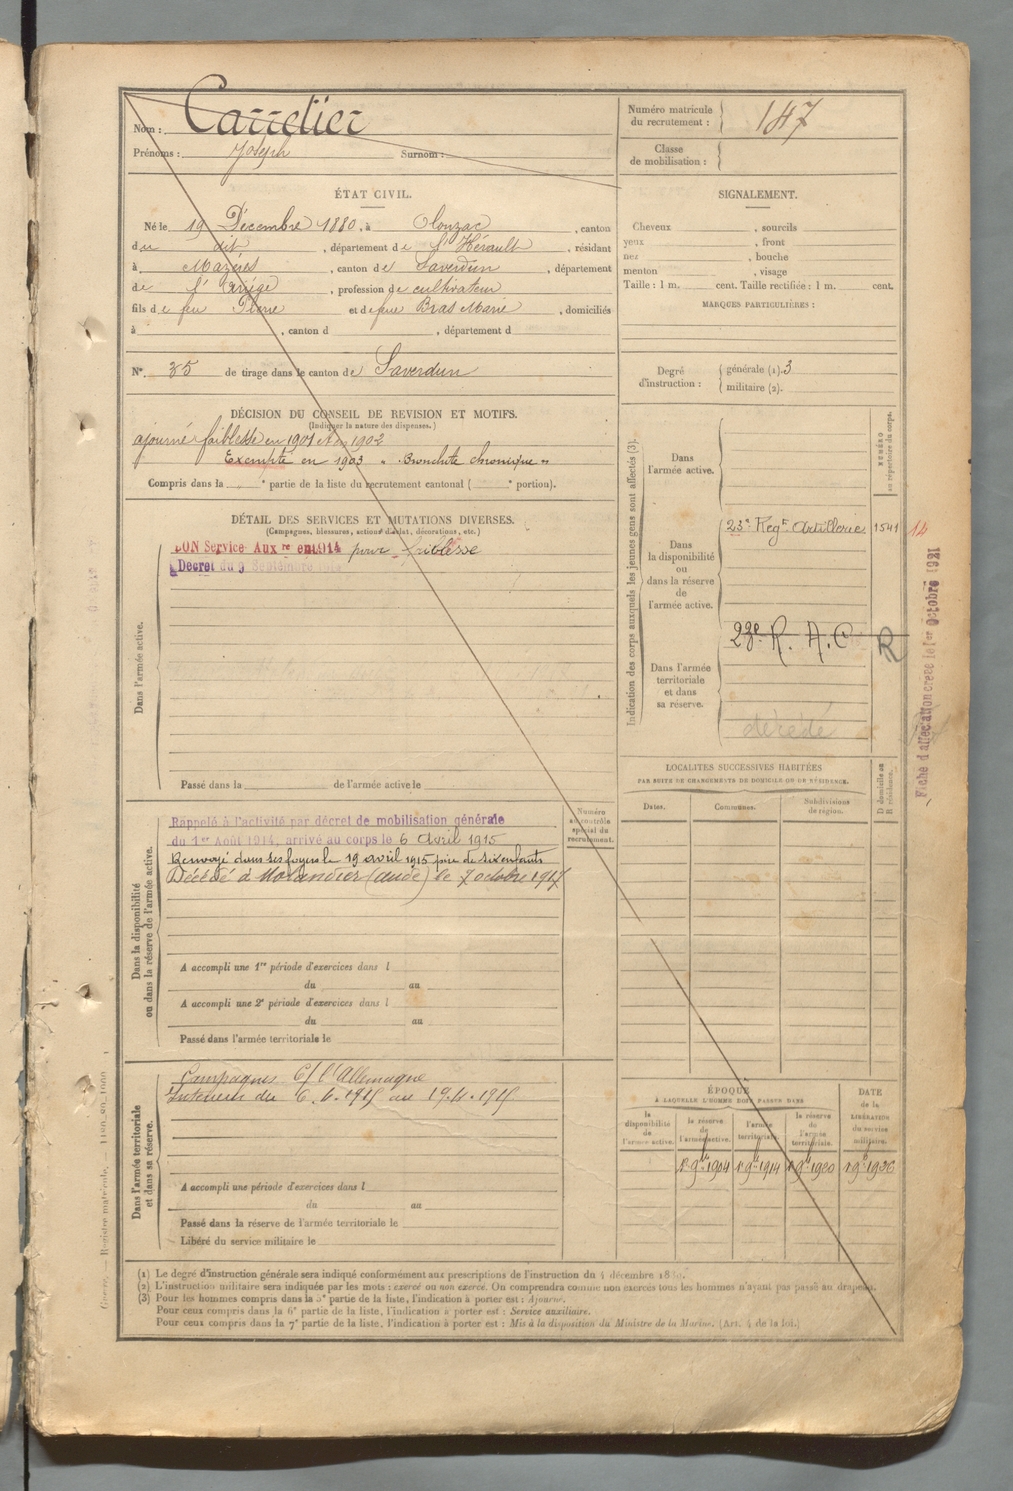 Nom : Carretier
Prénoms : Joseph Surnom :
Numéro matricule du recrutement : 147
Classe de mobilisation :
ÉTAT CIVIL.
Né le 19 Décembre 1880, à Olonzac, canton
du dit, département de l'Hérault, résidant
à Mazères, canton de Saverdun, département
de l'Ariège, profession de cultivateur
fils de feu Pierre et de feue Bras Marie, domiciliés
à , canton d , département d
N° 35 de tirage dans le canton de Saverdun
SIGNALEMENT.
Cheveux , sourcils
yeux , front
nez , bouche
menton , visage
Taille : 1 m. cent. Taille rectifiée : 1 m. cent.
MARQUES PARTICULIÈRES :
Degré d'instruction : générale (1). 3
militaire (2).
DÉCISION DU CONSEIL DE REVISION ET MOTIFS.
(Indiquer la nature des dispenses.)
ajourné faiblesse en 1901 et 1902
Exempté en 1903 " Bronchite chronique "
Compris dans la e partie de la liste du recrutement cantonal ( e portion).
DÉTAIL DES SERVICES ET MUTATIONS DIVERSES.
(Campagnes, blessures, actions d'éclat, décorations, etc.)
Dans l'armée active.
BON Service Auxre en 1914 pour faiblesse
Décret du 9 Septembre
Passé dans la de l'armée active le
Indication des corps auxquels les jeunes gens sont affectés (3).
NUMÉRO au répertoire du corps.
Dans l'armée active.
Dans la disponibilité ou dans la réserve de l'armée active.
23e Regt Artillerie 1541 14
23e R. A. C R
Dans l'armée territoriale et dans sa réserve.
décédé
Fiche d'affectation créée le 1er Octobre 1921
Dans la disponibilité ou dans la réserve de l'armée active.
Numéro au contrôle spécial du recrutement.
Rappelé à l'activité par décret de mobilisation générale
du 1er Août 1914, arrivé au corps le 6 Avril 1915
Renvoyé dans ses foyers le 19 avril 1915 père de six enfants
Décédé à Molandier (aude) le 7 octobre 1917
A accompli une 1re période d'exercices dans l
du au
A accompli une 2e période d'exercices dans l
du au
Passé dans l'armée territoriale le
LOCALITÉS SUCCESSIVES HABITÉES
PAR SUITE DE CHANGEMENTS DE DOMICILE OU DE RÉSIDENCE.
Dates. Communes. Subdivisions de région. D domicile ou R résidence.
Dans l'armée territoriale et dans sa réserve.
Campagnes C/ l'Allemagne
Intérieur du 6.4.1915 au 19.4.1915
A accompli une période d'exercices dans l
du au
Passé dans la réserve de l'armée territoriale le
Libéré du service militaire le
ÉPOQUE
À LAQUELLE L'HOMME DOIT PASSER DANS
la disponibilité de l'armée active. la réserve de l'armée active. l'armée territoriale. la réserve de l'armée territoriale.
DATE de la LIBÉRATION du service militaire.
(1) Le degré d'instruction générale sera indiqué conformément aux prescriptions de l'instruction du 4 décembre
(2) L'instruction militaire sera indiquée par les mots : exercé ou non exercé. On comprendra comme non exercés tous les hommes n'ayant pas passé au drapeau.
(3) Pour les hommes compris dans la 5e partie de la liste, l'indication à porter est : Ajourné.
Pour ceux compris dans la 6e partie de la liste, l'indication à porter est : Service auxiliaire.
Pour ceux compris dans la 7e partie de la liste, l'indication à porter est : Mis à la disposition du Ministre de la Marine. (Art. 4 de la loi.)